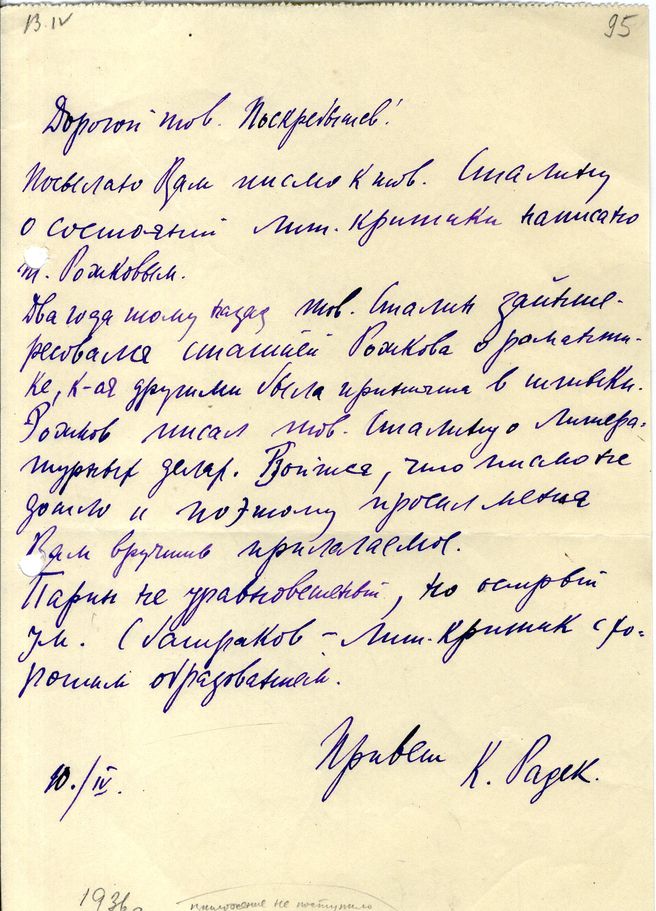 В.IV
95
Дорогой тов. Поскребышев!
Посылаю Вам письмо к тов. Сталину
о состояний лит. критики написано
т. Рожковым.
Два года тому назад тов. Сталин заинте-
ресовался статьей Рожкова о романти-
ке, к-ая другими была принята в штыки.
Рожков писал тов. Сталину о литера-
турных делах. Боится, что письмо не
дошло и поэтому просил меня
Вам вручить прилагаемое.
Парин не уравновешеный, но острый
ум. С батраков – лит. критик с хо-
рошим образованием.
Привет
К. Радек.
10./IV.
1936г
приложение не поступило